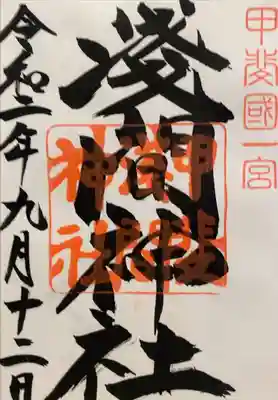 甲斐國一宮
淺間神社
甲斐
神社
令和二年九月十二日